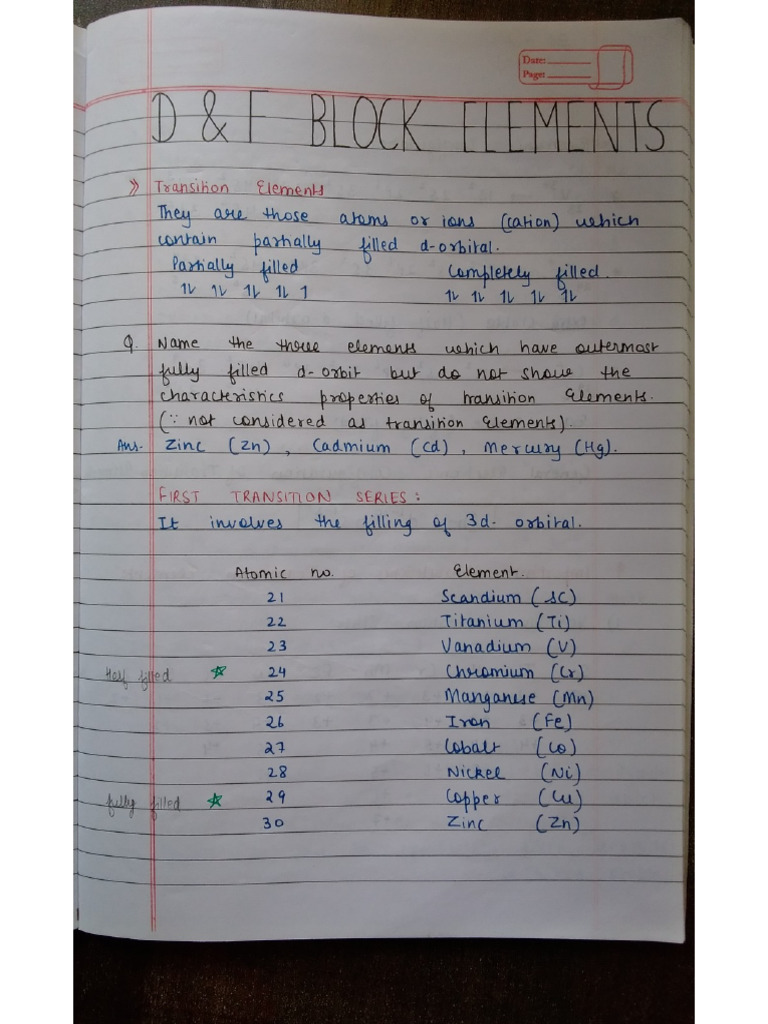 Date:
Page:
D & F BLOCK ELEMENTS
» Transition Elements
They are those atoms or ions (cation) which
contain partially filled d-orbital.
Partially filled Completely filled.
1l 1l 1l 1l 1 1l 1l 1l 1l 1l
Q. Name the three elements which have outermost
fully filled d-orbit but do not show the
characteristics properties of transition Elements.
(∵ not considered as transition Elements).
Ans- Zinc (Zn), Cadmium (Cd), Mercury (Hg).
FIRST TRANSITION SERIES:
It involves the filling of 3d- orbital.
Atomic no. Element.
21 Scandium (Sc)
22 Titanium (Ti)
23 Vanadium (V)
Half filled ☆ 24 Chromium (Cr)
25 Manganese (Mn)
26 Iron (Fe)
27 Cobalt (Co)
28 Nickel (Ni)
fully filled ☆ 29 Copper (Cu)
30 Zinc (Zn)